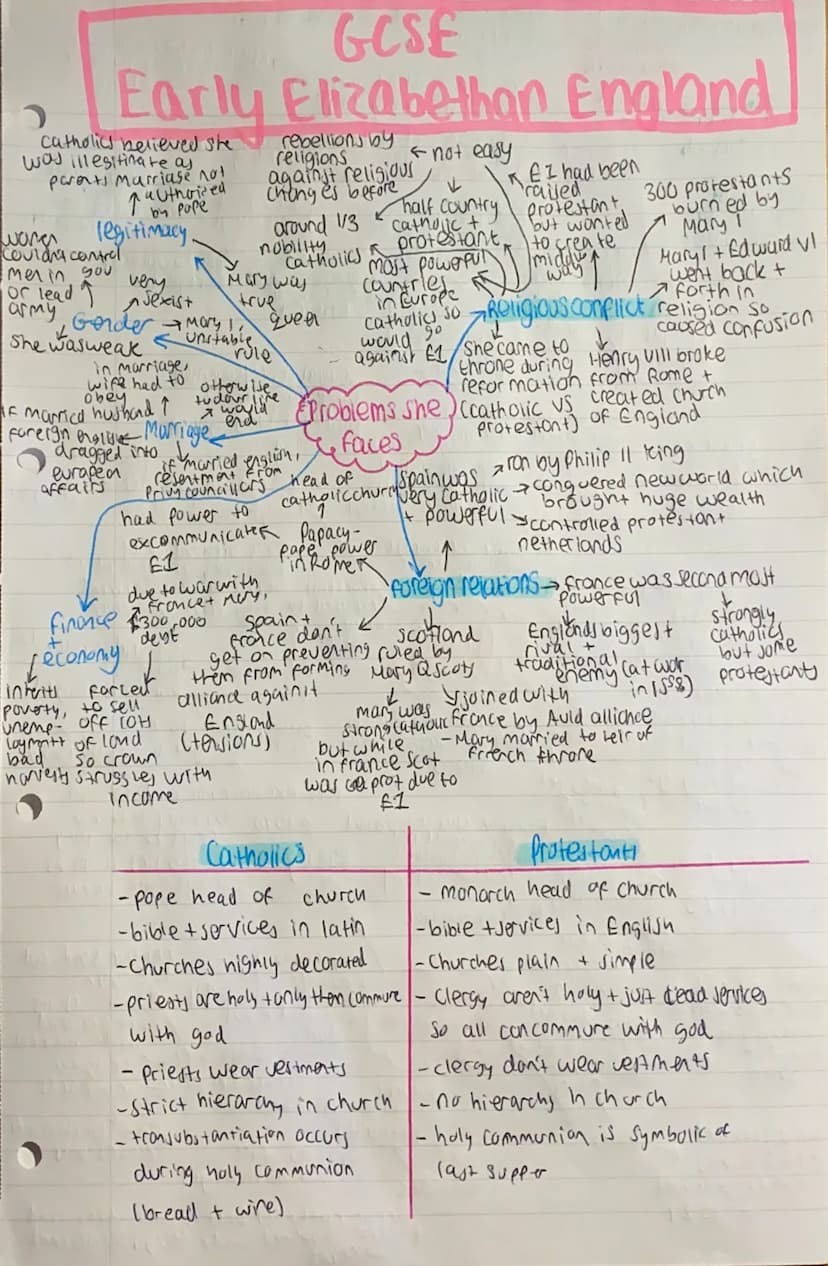 GCSE
Early Elizabethan England
catholics believed she
was illegitimate as
parents marriage not
authorised
by pope
legitimacy
Mary was
true
queen
women
couldn't control
men in gov
or lead
army
very
sexist
Gender
Mary I,
unstable
rule
she was weak
in marriage,
wife had to
obey
otherwise
tudor line
would
end
if married husband
foreign england
dragged into
european
affairs
Marriage
if married english,
resentment from
privy councillors
rebellions by
religions
against religious
changes before
not easy
half country
catholic +
protestant
around 1/3
nobility
catholics
most powerful
countries
in Europe
catholic so
would go
against E1
E1 had been
raised
protestant
but wanted
to create
middle
way
300 protestants
burned by
Mary I
Religious conflict
Mary I + Edward VI
went back +
forth in
religion so
caused confusion
she came to
throne during
reformation
(catholic vs
protestant)
Henry VIII broke
from Rome +
created church
of England
Problems she
faces
head of
catholic church
had power to
excommunicate
E1
Papacy-
pope power
in Rome
Spain was
very catholic
+ powerful
ran by Philip II king
conquered new world which
brought huge wealth
controlled protestant
netherlands
foreign relations
france was second most
powerful
Englands biggest
rival +
traditional
enemy (at war
in 1558)
strongly
catholics
but some
protestants
Spain +
france don't
get on preventing
them from forming
alliance against
England
(tensions)
scotland
ruled by
Mary Q Scots
mary was
strong catholic
but while
in france scot
was prot due to
E1
joined with
france by Auld alliance
- Mary married to heir of
french throne
finance
+
economy
due to war with
france + Mary,
£300,000
debt
inherits
poverty,
unemp-
loyment
bad
harvests
forced
to sell
off lots
of land
so crown
struggles with
income
Catholics
- pope head of church
- bible + services in latin
- Churches highly decorated
- priests are holy + only them commune
with god
- Priests wear vestments
- strict hierarchy in church
- transubstantiation occurs
during holy communion
(bread + wine)
Protestants
- monarch head of church
- bible + services in English
- Churches plain + simple
- clergy aren't holy + just lead services
so all can commune with god
- clergy don't wear vestments
- no hierarchy in church
- holy communion is symbolic of
last supper